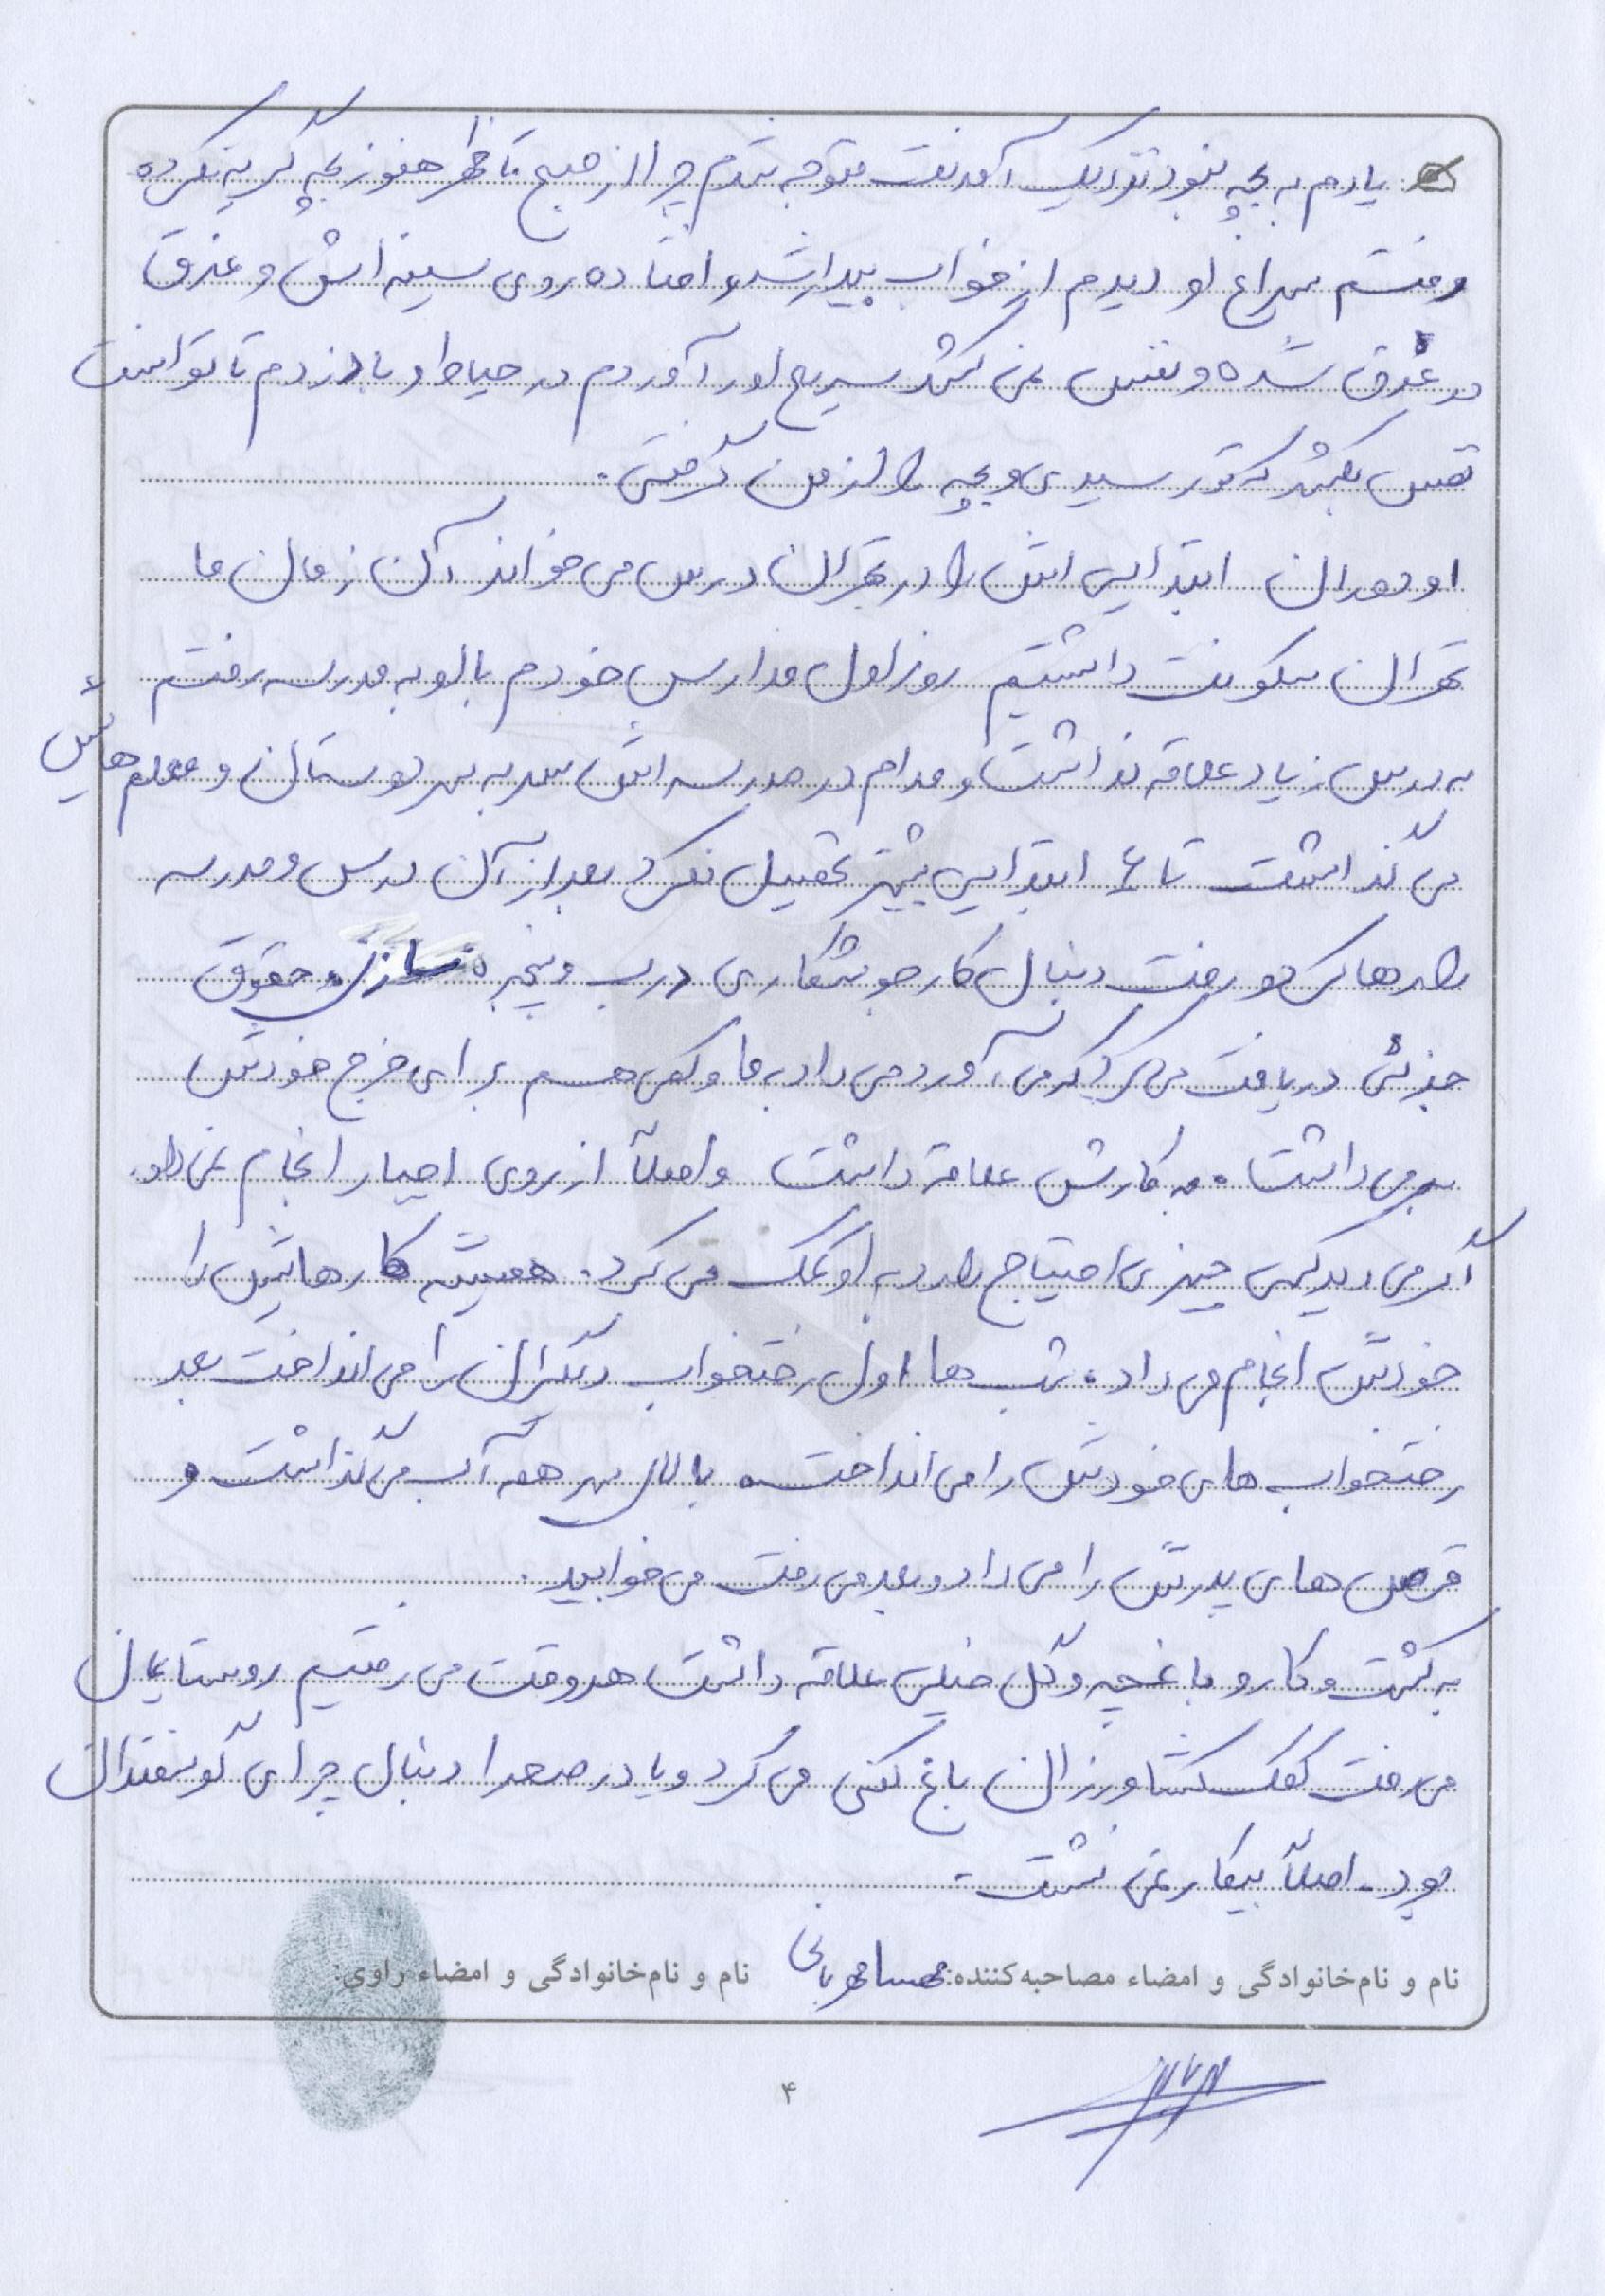 یادم به بچه نبود نزدیک آمدنت متوجه شدم چرا از صبح تا ظهر هنوز بچه گریه نکرده
رفتم سراغ او دیدم از خواب بیدار شده و افتاده روی سینه اش و عرق
در عرق شده و نفس نمی کشد سریع او را آوردم در حیاط و باد زدم تا توانست
نفس بکشد که تو رسیدی و بچه را از من گرفتی.
او دوران ابتدایی اش را در تهران درس می خواند آن زمان ما
تهران سکونت داشتیم روز اول مدارس خودم با او به مدرسه رفتم
به درس زیاد علاقه نداشت و مدام در مدرسه اش سر به سر دوستان و معلم هایش
می گذاشت تا ۴ ابتدایی بیشتر تحصیل نکرد بعد از آن درس و مدرسه
را رها کرد و رفت دنبال کار جوشکاری درب و پنجره سازی و حقوق
جزئی دریافت می کرد که می آورد می داد به ما و کمی هم برای خرج خودش
بر می داشت. به کارش علاقه داشت و اصلاً از روی اجبار انجام نمی داد.
اگر می دید کسی چیزی احتیاج دارد به او کمک می کرد. همیشه کارهایش را
خودش انجام می داد. شب ها اول رختخواب دیگران را می انداخت بعد
رختخواب های خودش را می انداخت. بالای سر همه آب می گذاشت و
قرص های پدرش را می داد و بعد می رفت می خوابید.
به کشت و کار و باغچه و گل خیلی علاقه داشت هر وقت می رفتیم روستایمان
می رفت کمک کشاورزان باغ کنی می کرد و یا در صحرا دنبال چرای گوسفندان
بود. اصلاً بیکار نمی نشست.
نام و نام‌خانوادگی و امضاء مصاحبه‌کننده: مهسا مهربانی نام و نام‌خانوادگی و امضاء راوی:
۴